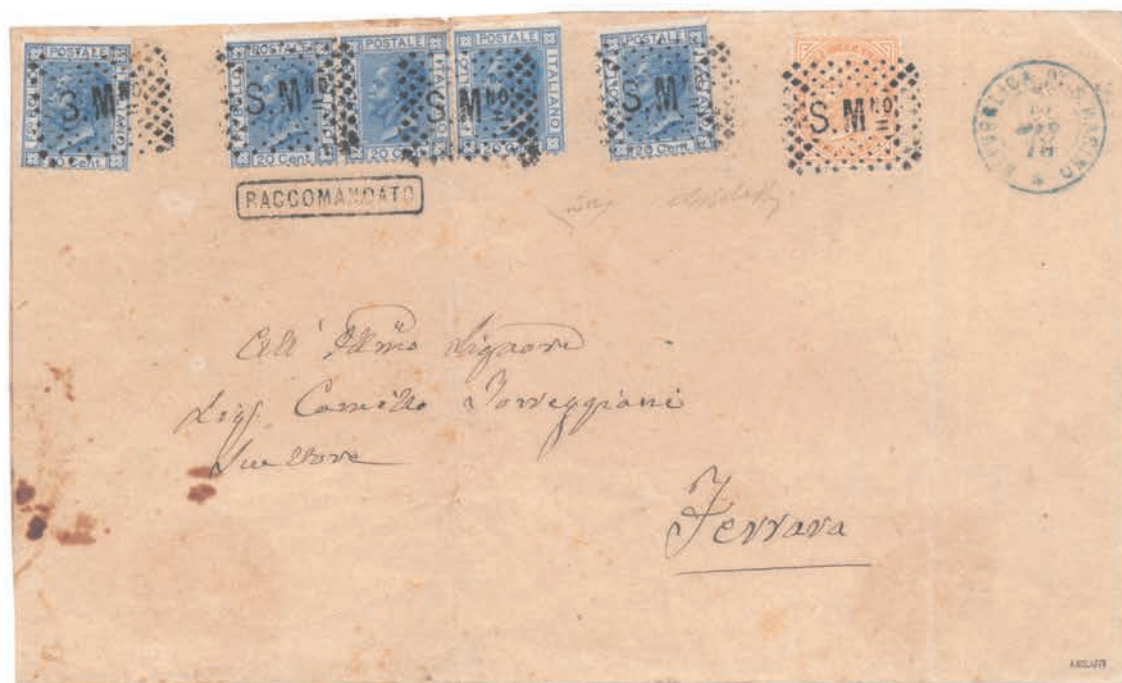 POSTALE
20 Cent.
S.Mno
POSTALE
20 Cent.
S.Mno
POSTALE
ITALIANO
20 Cent.
S.Mno
POSTALE
ITALIANO
20 C
POSTALE
20 Cent.
S.M
S.Mno
REPUBBLICA DI S. MARINO
RACCOMANDATO
All' Illmo Signore
Sig. Camillo Torreggiani
Scultore
Ferrara